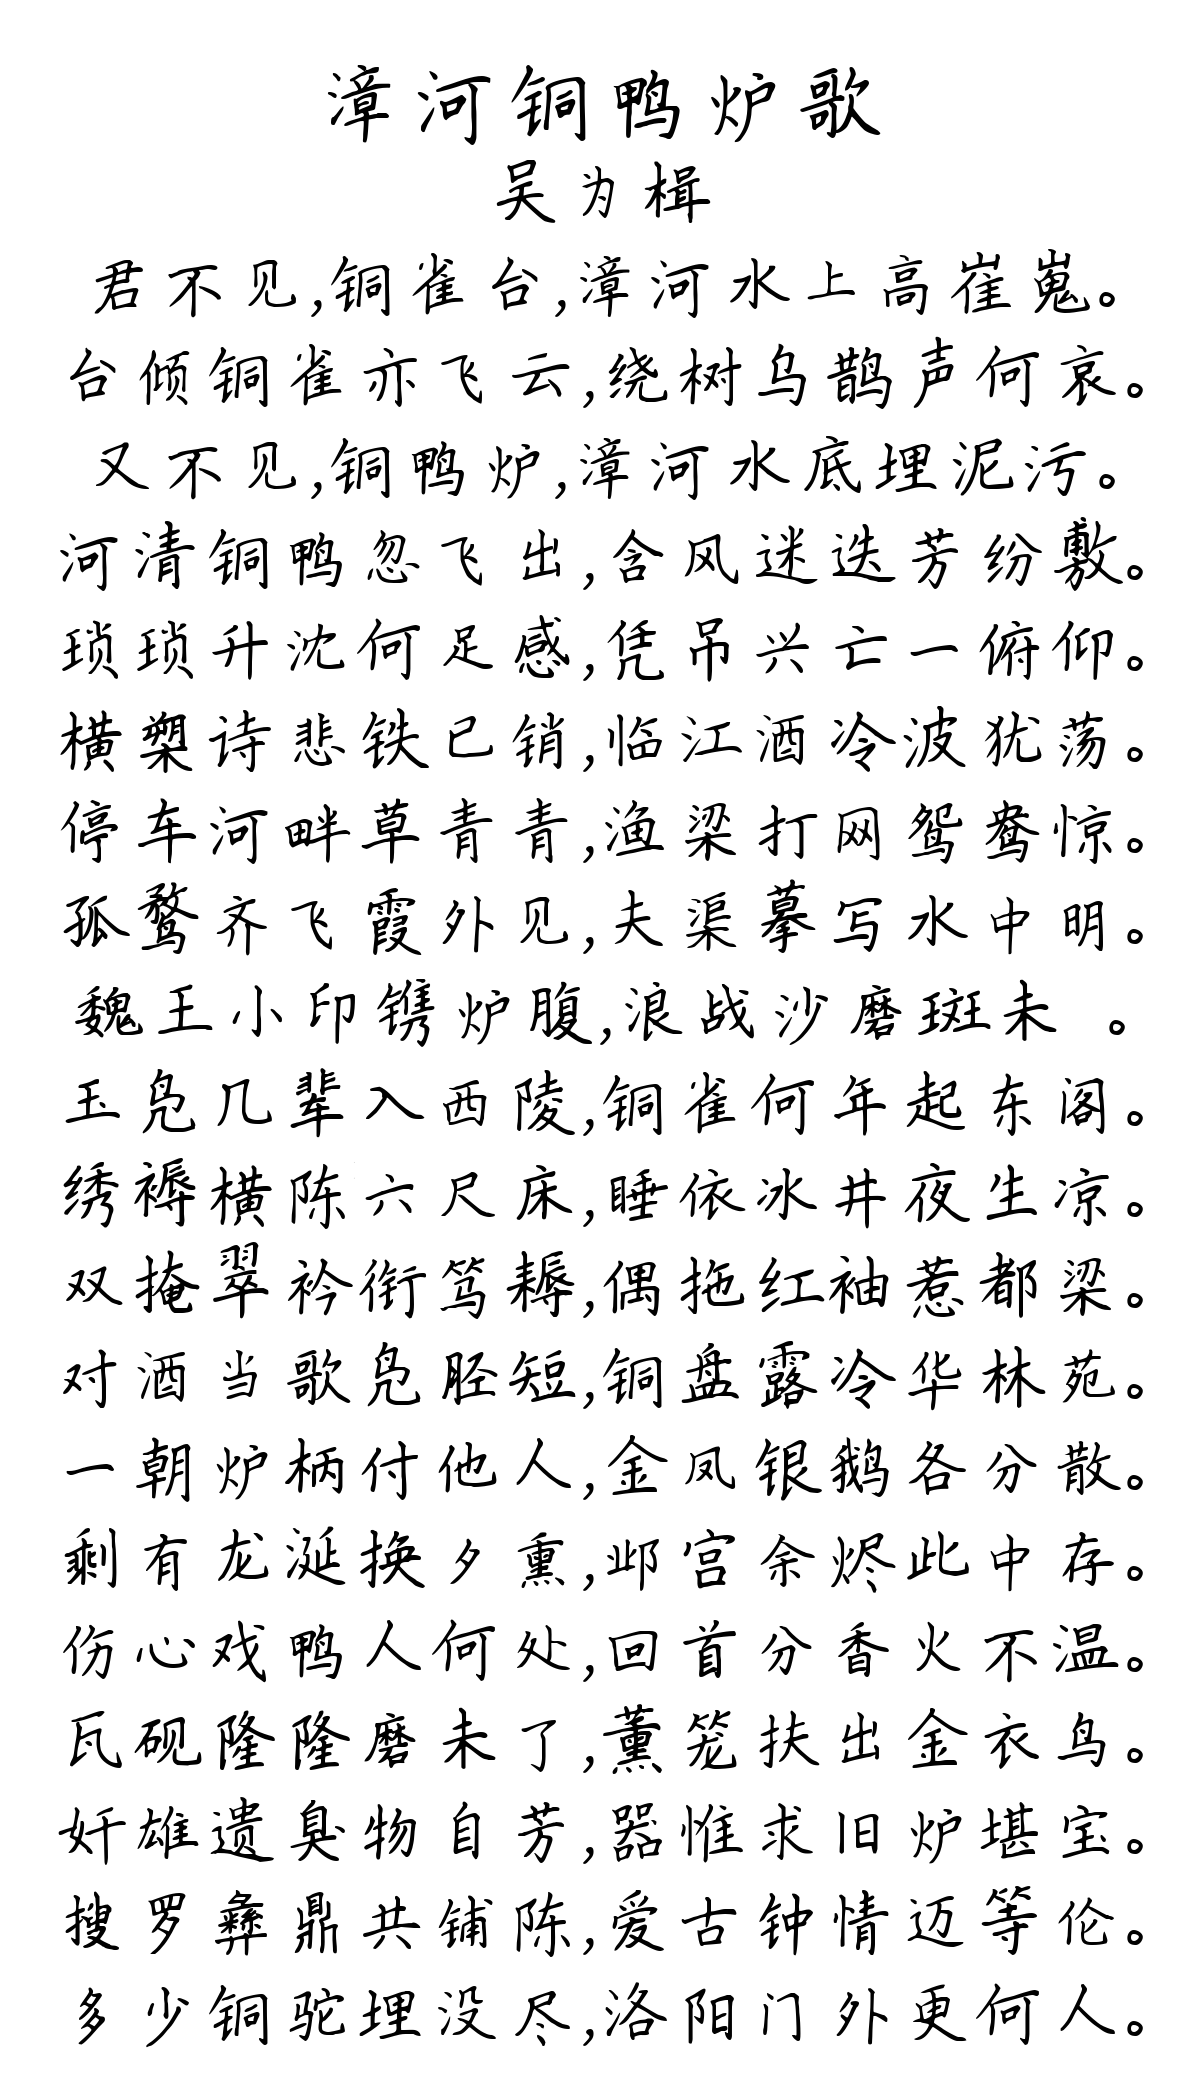 漳河铜鸭炉歌
吴为楫
君不见,铜雀台,漳河水上高崔嵬。
台倾铜雀亦飞云,绕树乌鹊声何哀。
又不见,铜鸭炉,漳河水底埋泥污。
河清铜鸭忽飞出,含风迷迭芳纷敷。
琐琐升沈何足感,凭吊兴亡一俯仰。
横槊诗悲铁已销,临江酒冷波犹荡。
停车河畔草青青,渔梁打网鸳鸯惊。
孤鹜齐飞霞外见,夫渠摹写水中明。
魏王小印镌炉腹,浪战沙磨斑未 。
玉凫几辈入西陵,铜雀何年起东阁。
绣褥横陈六尺床,睡依冰井夜生凉。
双掩翠衿衔笃耨,偶拖红袖惹都梁。
对酒当歌凫胫短,铜盘露冷华林苑。
一朝炉柄付他人,金凤银鹅各分散。
剩有龙涎换夕熏,邺宫余烬此中存。
伤心戏鸭人何处,回首分香火不温。
瓦砚隆隆磨未了,薰笼扶出金衣鸟。
奸雄遗臭物自芳,器惟求旧炉堪宝。
搜罗彝鼎共铺陈,爱古钟情迈等伦。
多少铜驼埋没尽,洛阳门外更何人。